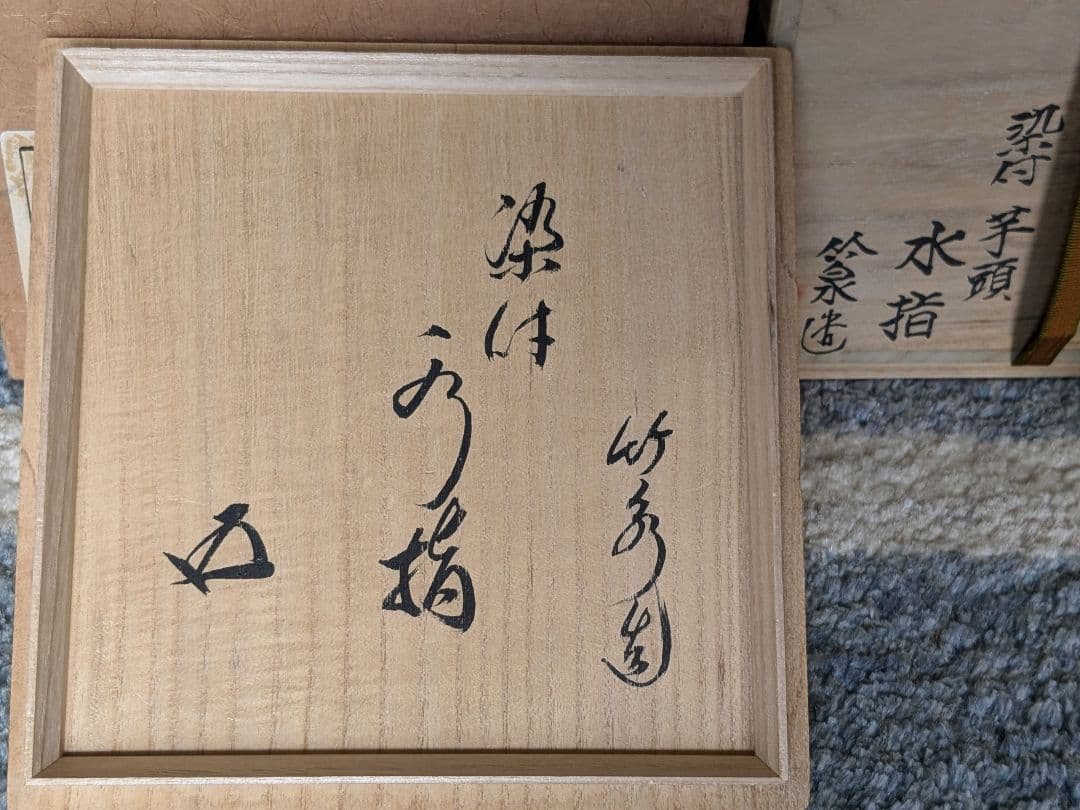 竹泉造
染付
水指
染付 芋頭
水指
竹泉造